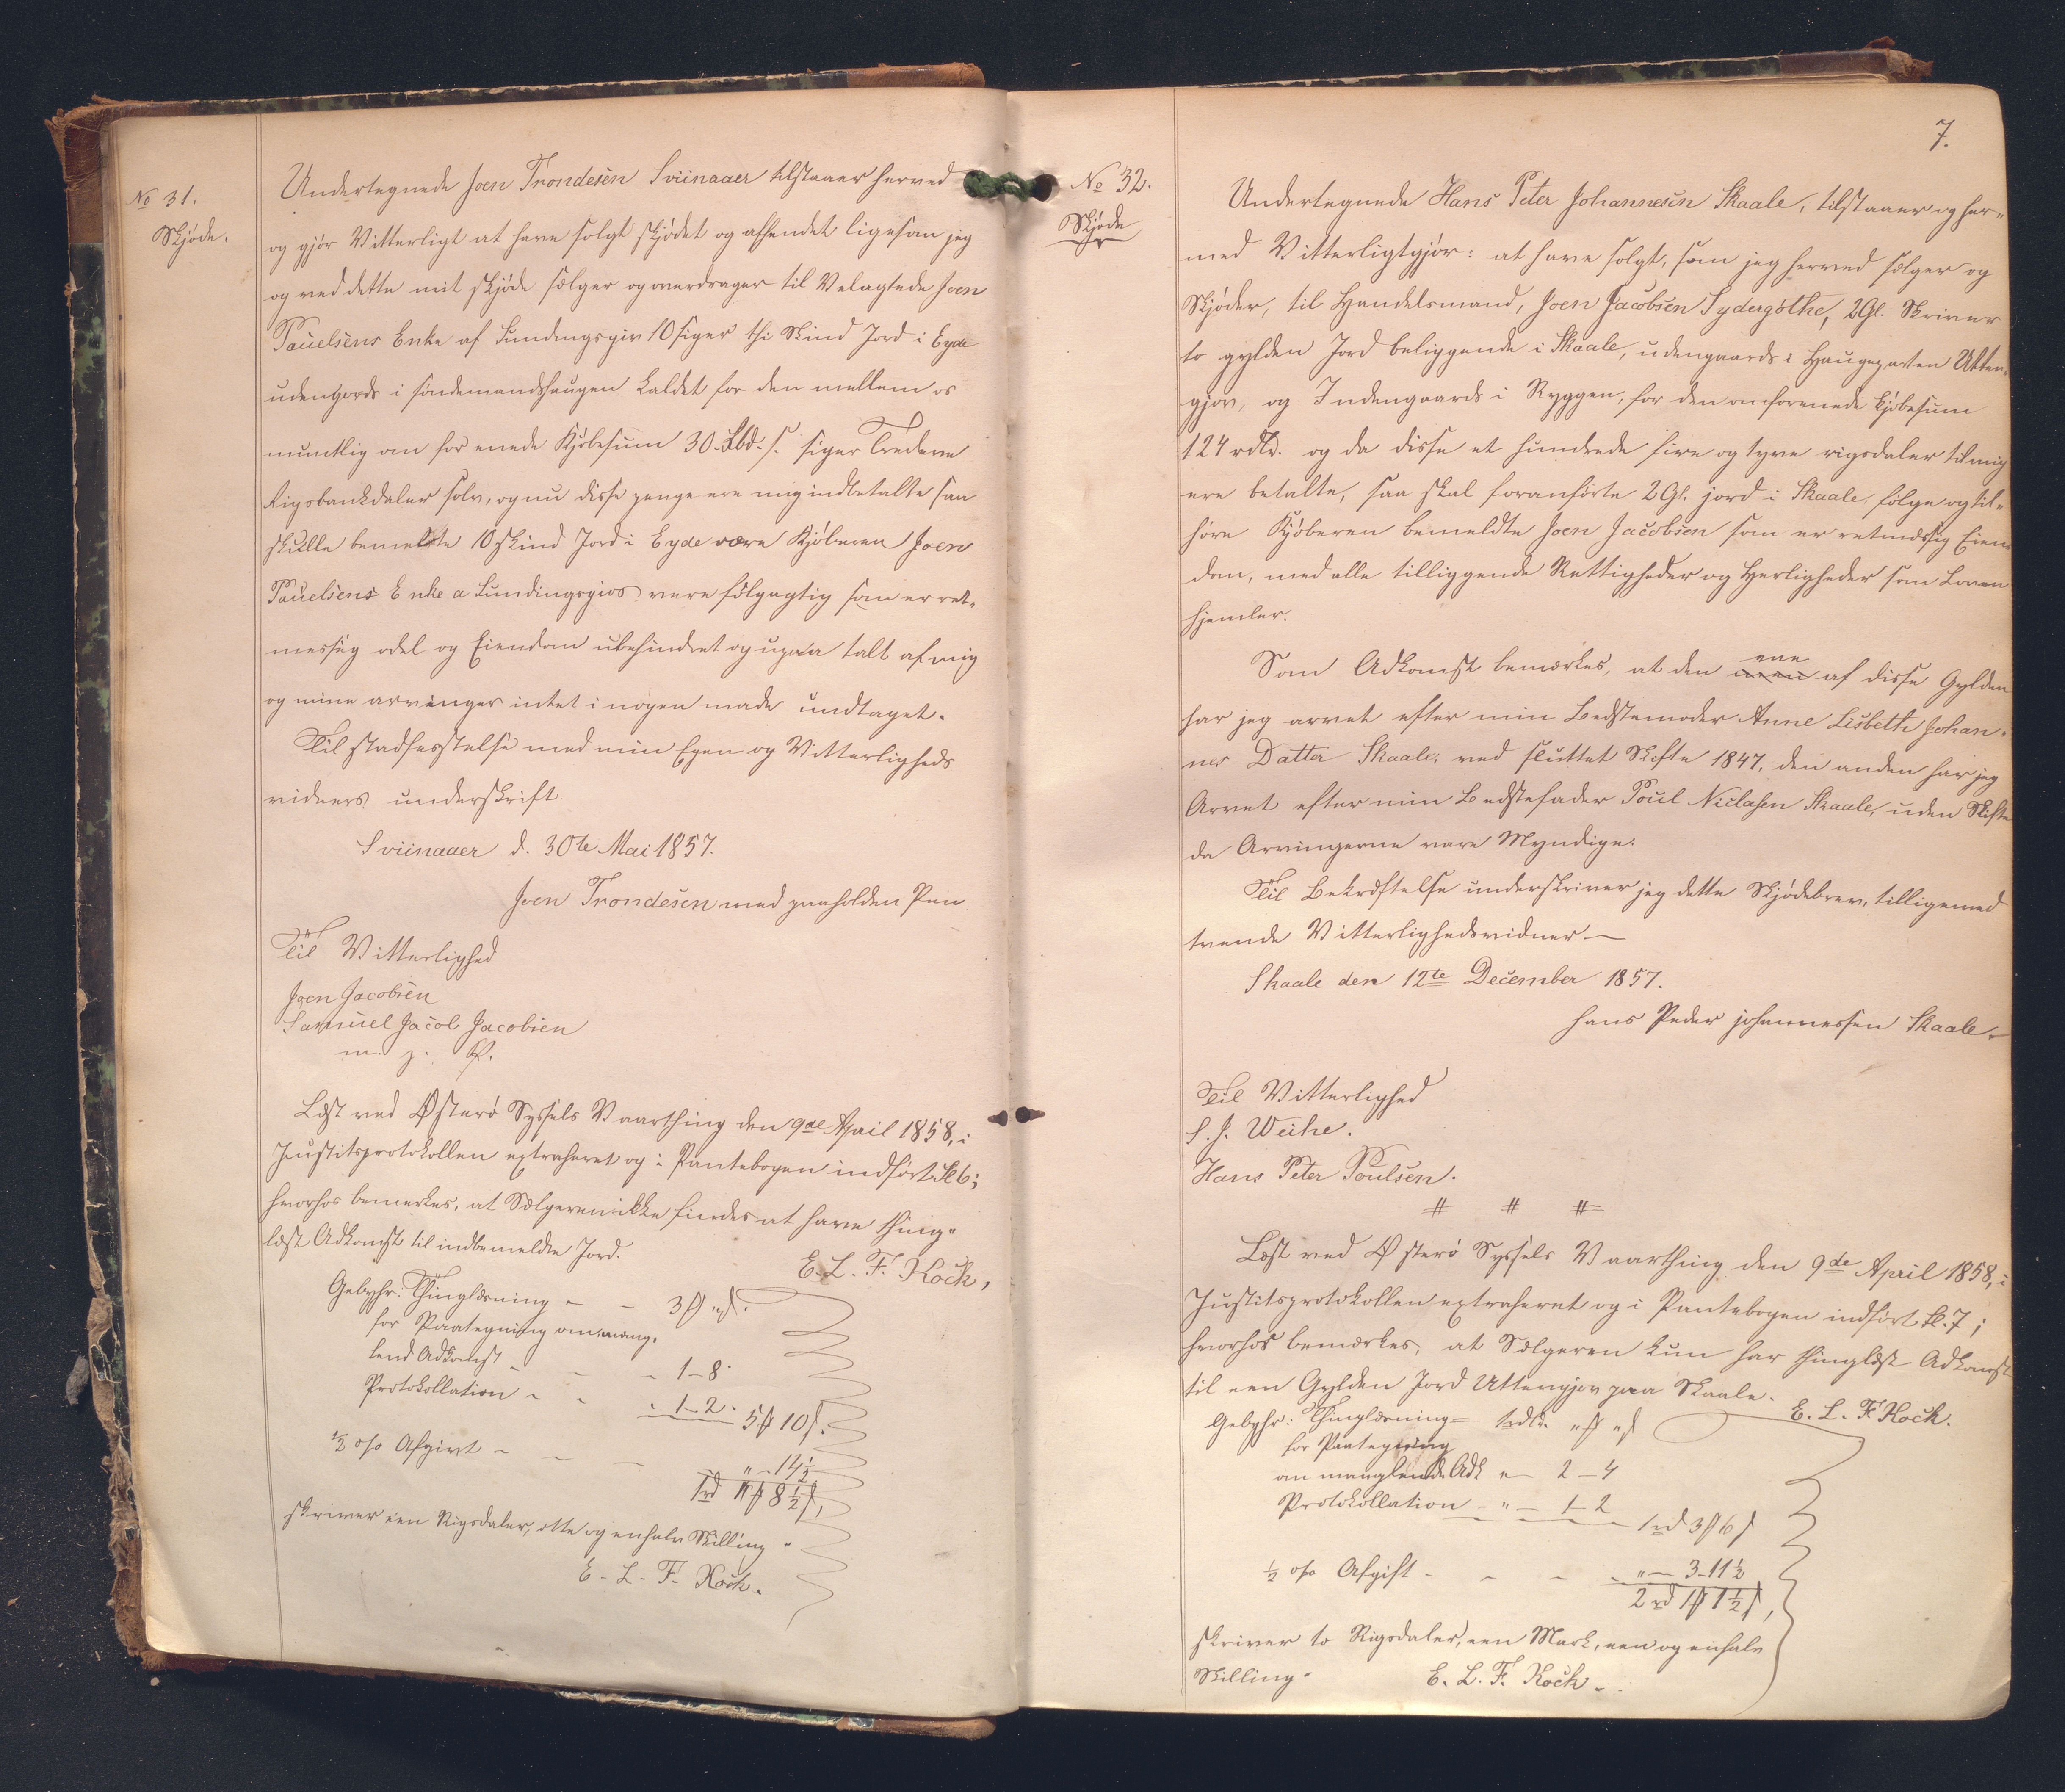 No 31.
Skjøde.
Undertegnede Joen Trondesen Sviinaaer tilstaaer herved
og gjør Vitterligt at have solgt skjødet og afhendet ligesom jeg
og ved dette mit skjøde sælger og overdrager til Velagtede Joen
Pauelsens Enke af Lundingsgiv 10 siger thi Skind Jord i Eyde
udengords i søndemandshaugen kaldet for den mellem os
muntlig om for enede Kjøbesum 30. Rbd. s. siger Tredeve
Rigsbankdaler sølv, og nu disse penge ere mig indbetalte saa
skulle bemeldte 10 skind Jord i Eyde være Kjøberen Joen
Pauelsens Enke a Lundingsgios være følgagtig som er ret-
messig odel og Eiendom ubehindret og upaa talt af mig
og mine arvinger intet i nogen made undtaget.
Til stadfæstelse med min Egen og Vitterligheds
vidners underskrift.
Sviinaaer d. 30te Mai 1857.
Joen Trondesen med paaholden Pen
Til Vitterlighed
Joen Jacobsen
Samuel Jacob Jacobsen
m. z. P.
Læst ved Østerø Syssels Vaarthing den 9de April 1858, i
Justitsprotokollen extraheret og i Pantebogen indført fol 6;
hvorhos bemerkes, at Sælgeren ikke findes at have thing-
læst Adkomst til indbemeldte Jord.
E. L. F. Koch,
Gebyhr: Thinglæsning - - 3 ₻ „ s.
for Paategning om mang-
lend Adkomst - - - 1-8.
Protokollation - - - 1-2. 5 ₻ 10 s.
½ o/o Afgivt - - - „ - 14½
1 rd „ ₻ 8½ s,
skriver een Rigsdaler, otte og enhalv Skilling.
E. L. F. Koch.
7.
No 32.
Skjøde
Undertegnede Hans Peter Johannesen Skaale, tilstaaer og her-
med Vitterligtgjør: at have solgt, som jeg herved sælger og
Skjøder, til Handelsmand, Joen Jacobsen Sydergøthe, 2 Gl. Skriver
to gylden Jord beliggende i Skaale, udengaards i Haugeparten Utten-
gjov, og Indengaards i Ryggen, for den omforenede kjøbesum
124 rdlr. og da disse et hundrede fire og tyve rigsdaler til mig
ere betalte, saa skal foranførte 2 Gl. jord i Skaale, følge og til-
høre Kjøberen bemeldte Joen Jacobsen som er retmæssig Eien-
dom, med alle tilliggende Rettigheder og Herligheder som Loven
hjemler.
Som Adkomst bemærkes, at den ene af disse Gylden
har jeg arvet efter min Bedstemoder Anne Lisbeth Johan-
nes Datter Skaale, ved sluttet Skifte 1847, den anden har jeg
Arvet efter min Bedstefader Poul Niclasen Skaale, uden Skifte
da Arvingerne vare Myndige.
Til Bekræftelse underskriver jeg dette Skjødebrev, tilligemed
tvende Vitterlighedsvidner —
Skaale den 12te December 1857.
hans Peder johannessen Skaale.
Til Vitterlighed
S. J. Weihe.
Hans Peter Poulsen.
# # #
Læst ved Østerø Syssels Vaarthing den 9de April 1858, i
Justitsprotokollen extraheret og i Pantebogen indført fol. 7;
hvorhos bemærkes, at Sælgeren kun har thinglæst Adkomst
til een Gylden Jord Uttengjov paa Skaale.
E. L. F. Koch.
Gebyhr: Thinglæsning = 1 rdlr. „ ₻ „ s
for Paategning
om manglende Adk „ - 2 - 4
Protokollation - „ - 1 - 2
1 rd 3 ₻ 6 s
½ o/o Afgift - - - - „ - 3-11½
2 rd 1 ₻ 1½ s,
skriver to Rigsdaler, een Mark, een og enhalv
Skilling.
E. L. F. Koch.